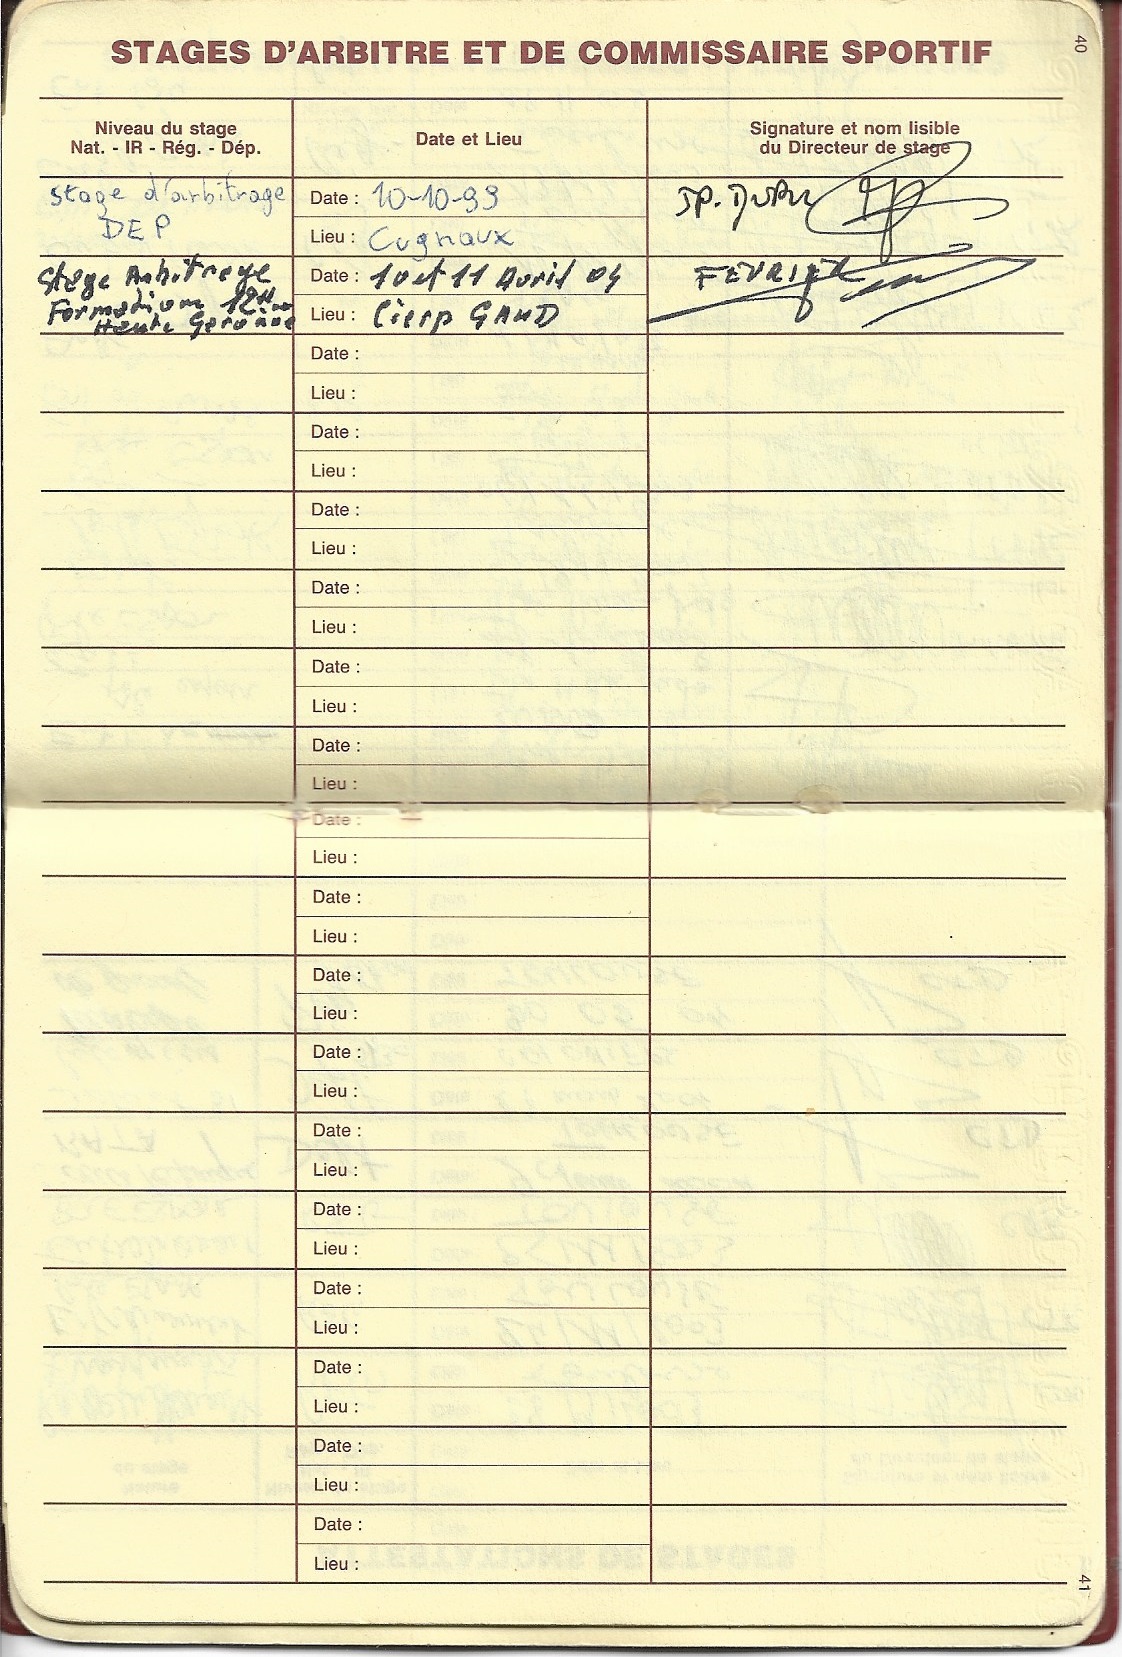 STAGES D'ARBITRE ET DE COMMISSAIRE SPORTIF
40
Niveau du stage
Nat. - IR - Rég. - Dép.
Date et Lieu
Signature et nom lisible
du Directeur de stage
Stage d'arbitrage
DEP
Date : 10-10-99
Lieu : Cugnaux
JP.
Stage Arbitrage
Formation
Haute Garonne
Date : 10 et 11 Avril 04
Lieu : Cierp GAUD
FEVRIER
Date :
Lieu :
Date :
Lieu :
Date :
Lieu :
Date :
Lieu :
Date :
Lieu :
Date :
Lieu :
Date :
Lieu :
Date :
Lieu :
Date :
Lieu :
Date :
Lieu :
Date :
Lieu :
Date :
Lieu :
Date :
Lieu :
Date :
Lieu :
Date :
Lieu :
Date :
Lieu :
41